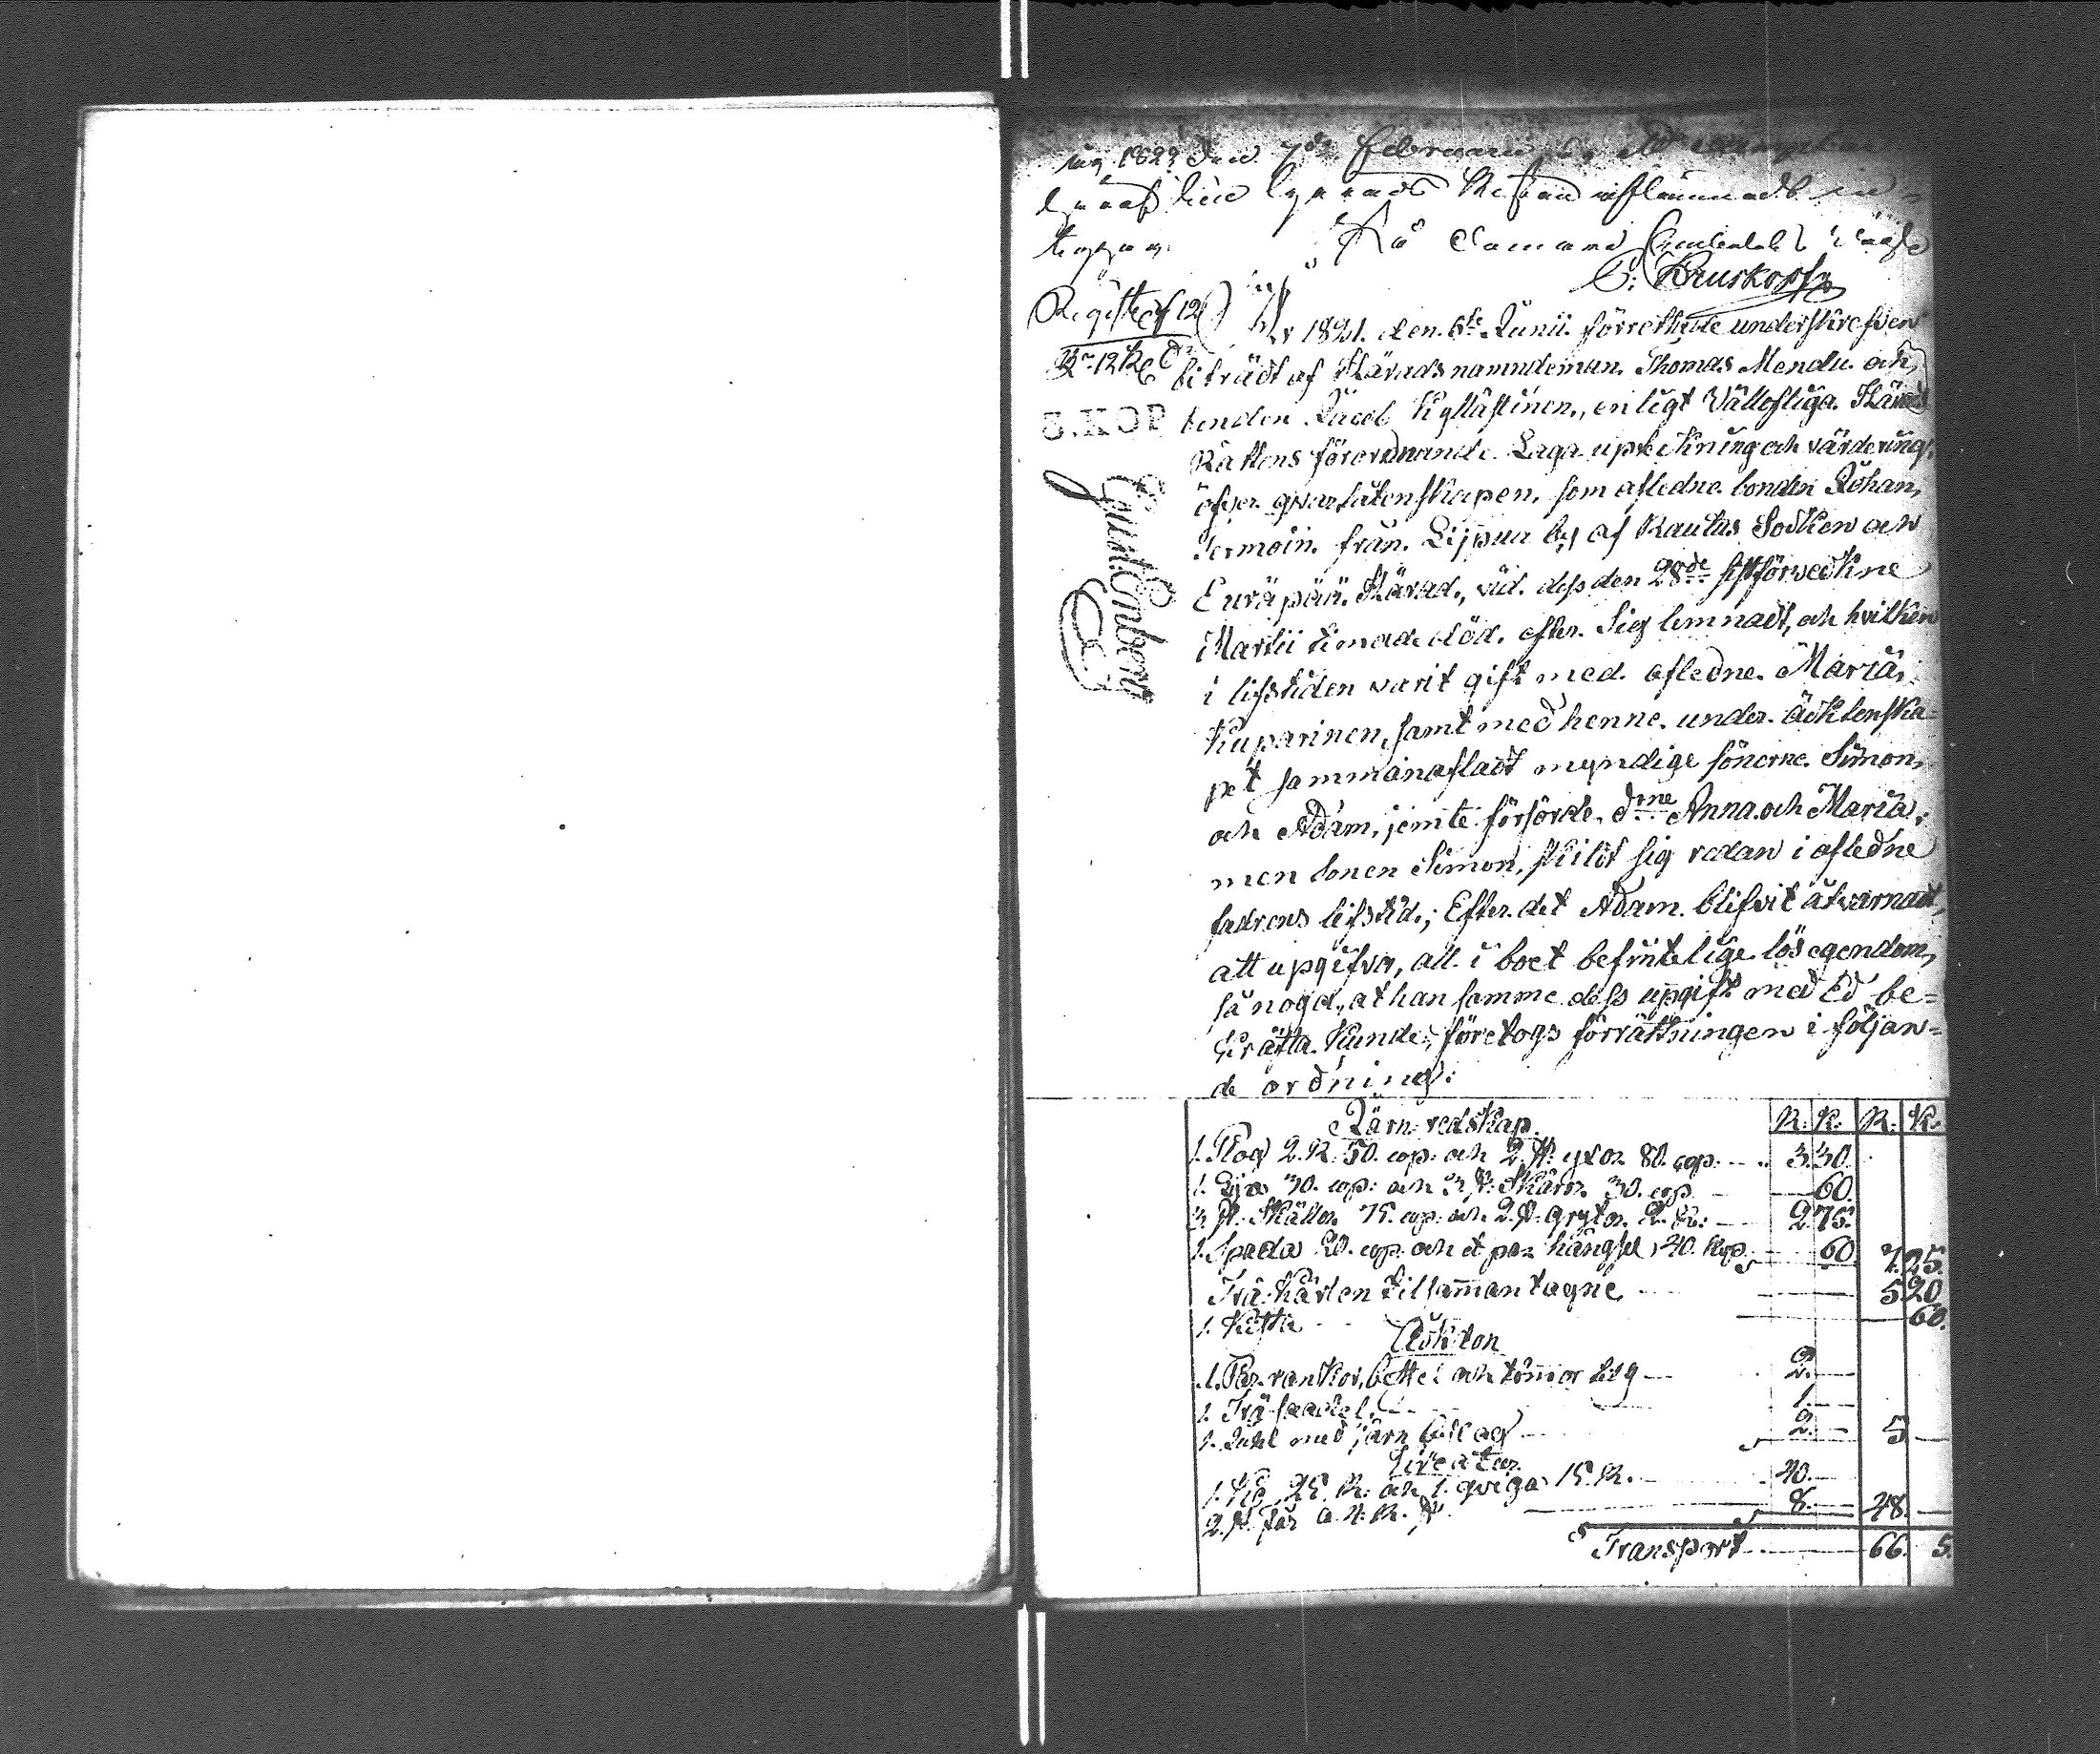 1823 den 7de Februarii
aflämnadt
C: Cruskopf
Registr. af 12
5. KOP
Gust: Enberg
År 1821. den 6te Junii. förrettade underskrefven
biträdt af Härads nämndeman. Thomas Mendu. och
bonden Jacob Kylläftinen., enligt Vällofliga. Härads
Rättens förordnande. Laga uptekning och värdering,
öfver qvarlåtenskapen, som afledne bonden Johan,
Termoin. från. Lippua by af Rautus Socken och
Euräpää. Härad., vid. dess den 28de sistförvekne
Martii timade död. efter. Sig lemnadt, och hvilken
i lifstiden varit gift med. afledne. Maria,
Kuparinen, samt med henne. under. äcktenska=
pet sammanafladt myndige sönerne. Simon,
och Adam, jemte försörde. drne Anna och Maria,
men sonen Simon, skildt sig redan i afledne
fadrens lifstid.; Efter det Adam. blifvit åtvarnadt,
att upgifva, all i boet befintelige lös egendom,
så noga, at han samme dess upgift med Ed be=
kräfta. kunde, företogs förrättningen i följan=
de ordning:
Järn redskap. R. K. R. K.
1. Plog 2. R. 50. cop: och 2. st: yxor 80. cop: 3.30.
1. Lija 30. cop: och 3 st: Skäror. 30. cop. 60.
3. st. Skällor 75. cop: och 2. st: grytor. 2. R: 2.75.
1. Spada 20. cop. och et par hängsel, 40. kop. 60. 7.25.
Trä. kärlen tilsamman tagne 5.20
1. Ketta 60.
Åkdon
1. Par. rankor, bettel och tömar 2.
1. Träsaadel. 1.
1. med järn beslag 2. 5.
Creatur.
1. Ko 25. R: och 1. qviga 15. R. 40.
2. st. får a. 4. R. st. 8. 48.
Transport 66. 5.